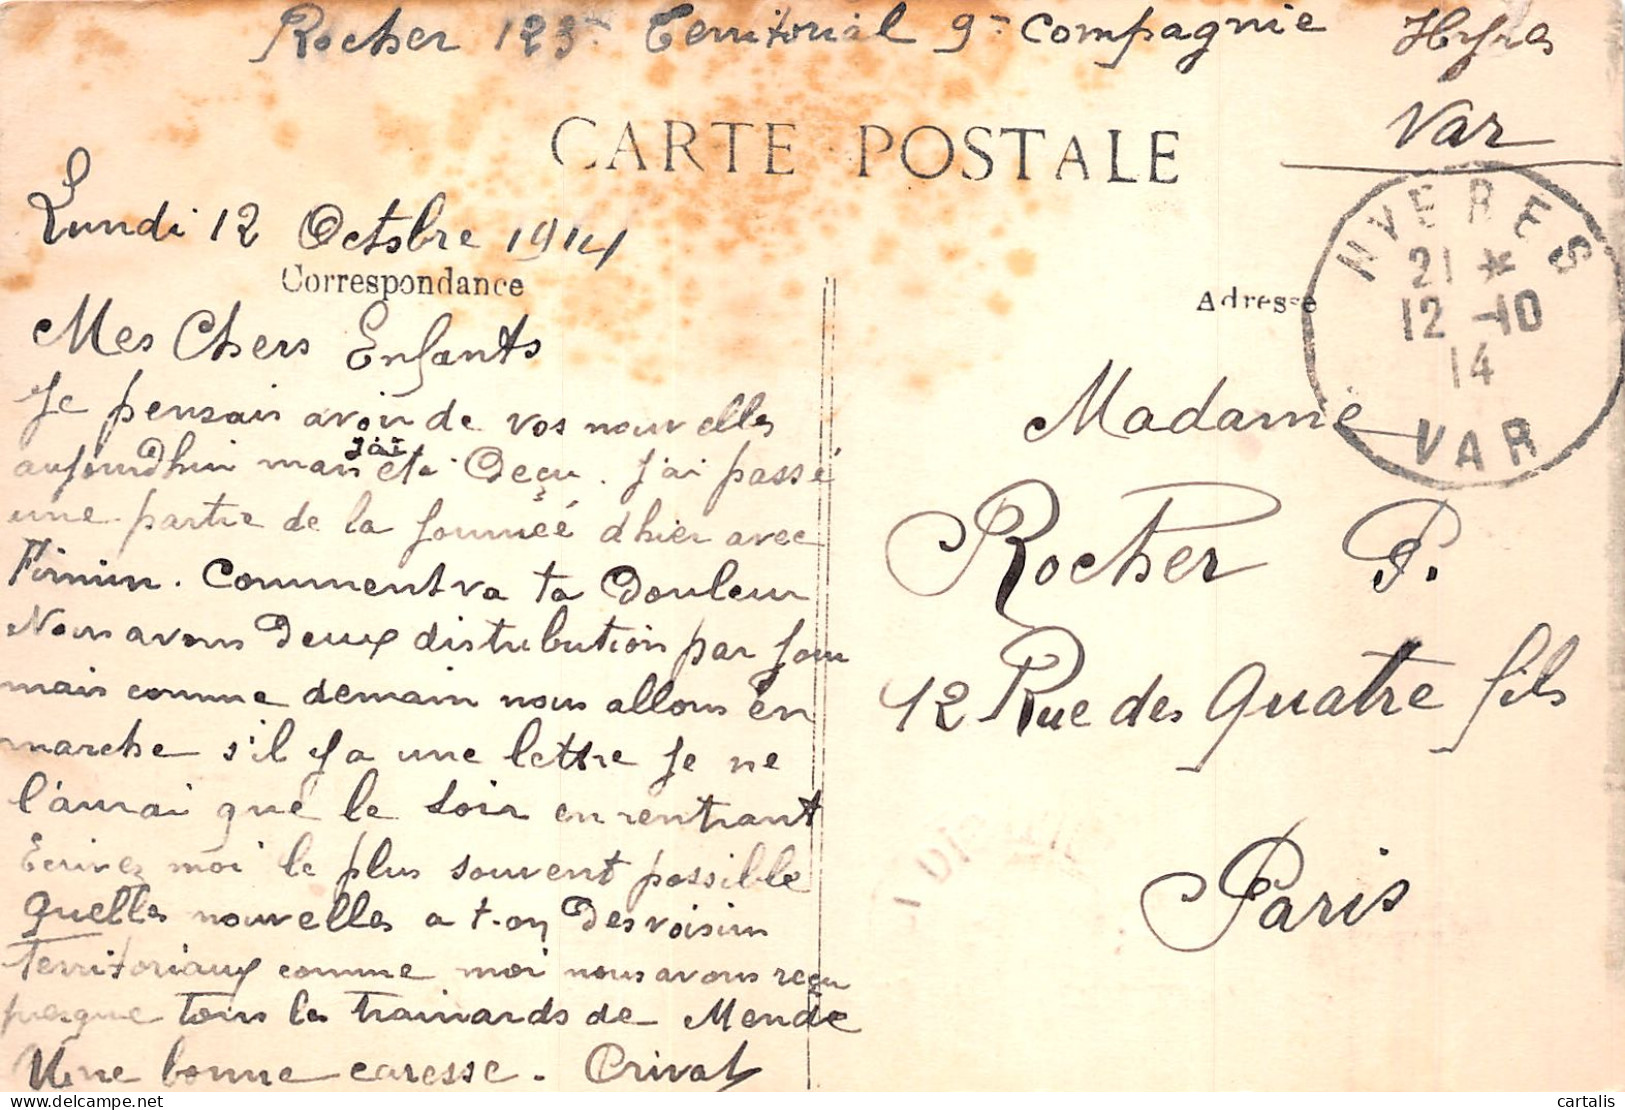 Rocher 123e Territorial 9e compagnie Hyères
Var
CARTE POSTALE
Lundi 12 Octobre 1914
Correspondance
Mes Chers Enfants
Je pensais avoir de vos nouvelles
j'ai
aujourdhui mais été Deçu. J'ai passé
une partie de la journeé dhier avec
Firmin. Comment va ta Douleur
Nous avons Deux distribution par jour
mais comme demain nous allons en
marche s'il y a une lettre je ne
l'aurai que le soir en rentrant
Ecrivez moi le plus souvent possible
Quelles nouvelles a t-on Des voisins
Territoriaux comme moi nous avons reçu
presque tous les trainards de Mende
Une bonne caresse. Privat
Adresse
HYERES
21 *
12 -10
14
VAR
Madame
Rocher P.
12 Rue des Quatre fils
Paris
cartalis